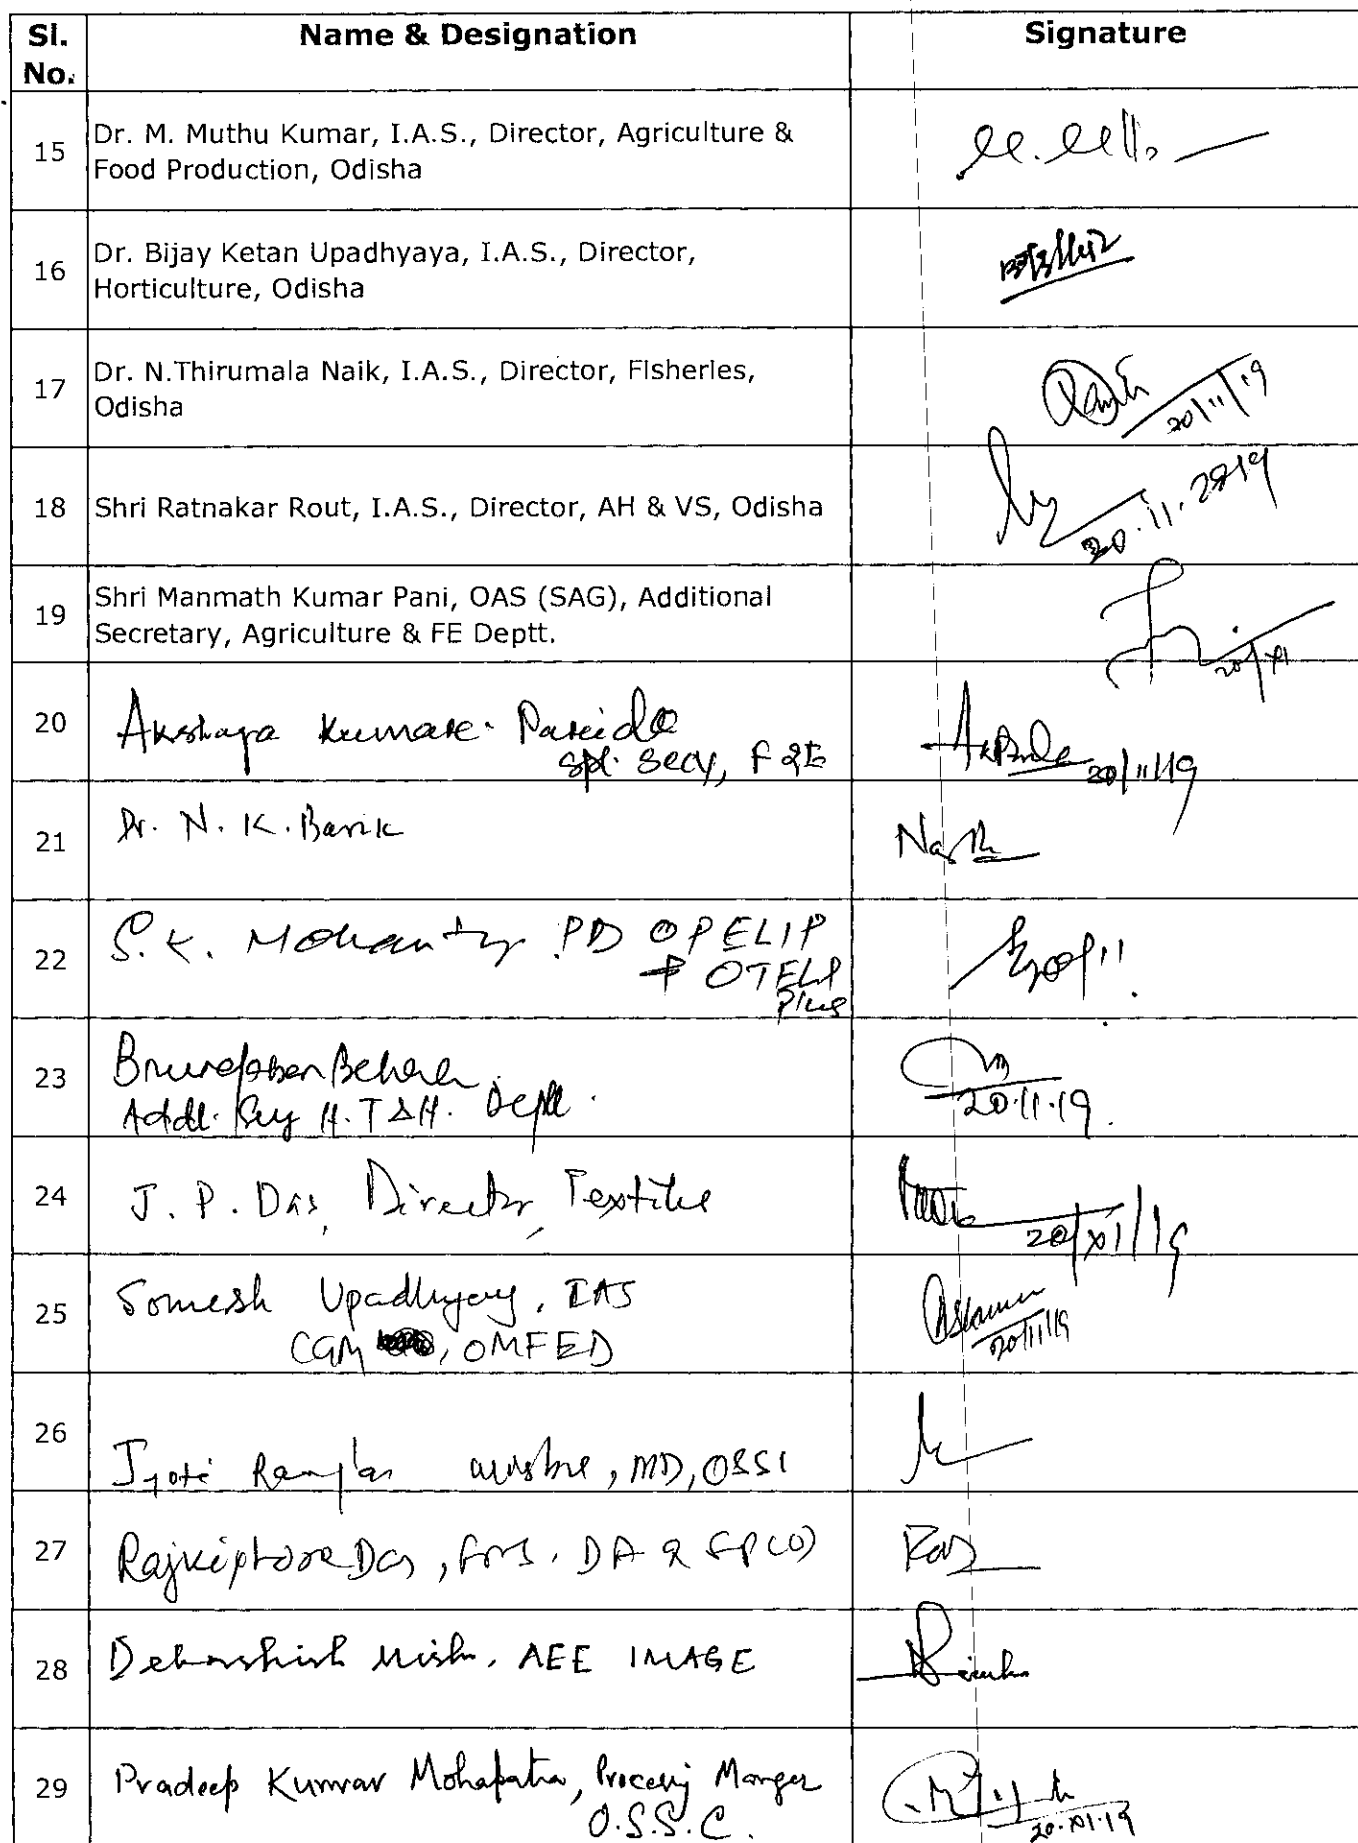 Sl. No. Name & Designation Signature
15 Dr. M. Muthu Kumar, I.A.S., Director, Agriculture &
Food Production, Odisha
16 Dr. Bijay Ketan Upadhyaya, I.A.S., Director,
Horticulture, Odisha
17 Dr. N.Thirumala Naik, I.A.S., Director, Fisheries,
Odisha
20/11/19
18 Shri Ratnakar Rout, I.A.S., Director, AH & VS, Odisha
20.11.2019
19 Shri Manmath Kumar Pani, OAS (SAG), Additional
Secretary, Agriculture & FE Deptt.
20/XI
20 Akshaya Kumar Parida
Spl. Secy, F & E
20/11/19
21 Dr. N. K. Barik
22 S. K. Mohanty PD OPELIP
+ OTELP
Plus
20/11
23 Behera
Addl. Secy H.T & H. Deptt.
20.11.19
24 J. P. Das, Director, Textile
20/XI/19
25 Somesh Upadhyay, IAS
CGM, OMFED
20/11/19
26 Jyoti Ranjan Mishra, MD, OSSC
27 Rajkishore Das, DA & FP(O)
28 Debashish Mishra, AEE IMAGE
29 Pradeep Kumar Mohapatra, Processing Manager
O.S.S.C.
20.XI.19